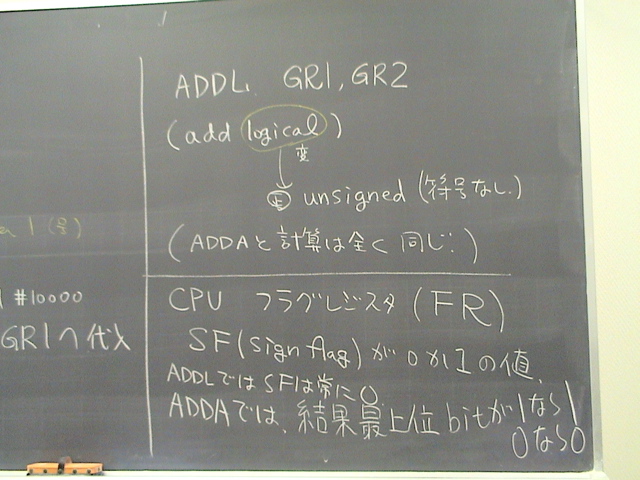 ADDL GR1, GR2
(add logical)
変
正 unsigned (符号なし)
(ADDAと計算は全く同じ!)
1 (号)
#10000
GR1へ代入
CPU フラグレジスタ (FR)
SF(sign flag)が0か1の値.
ADDLではSFは常に0
ADDAでは、結果最上位bitが1なら1
0なら0